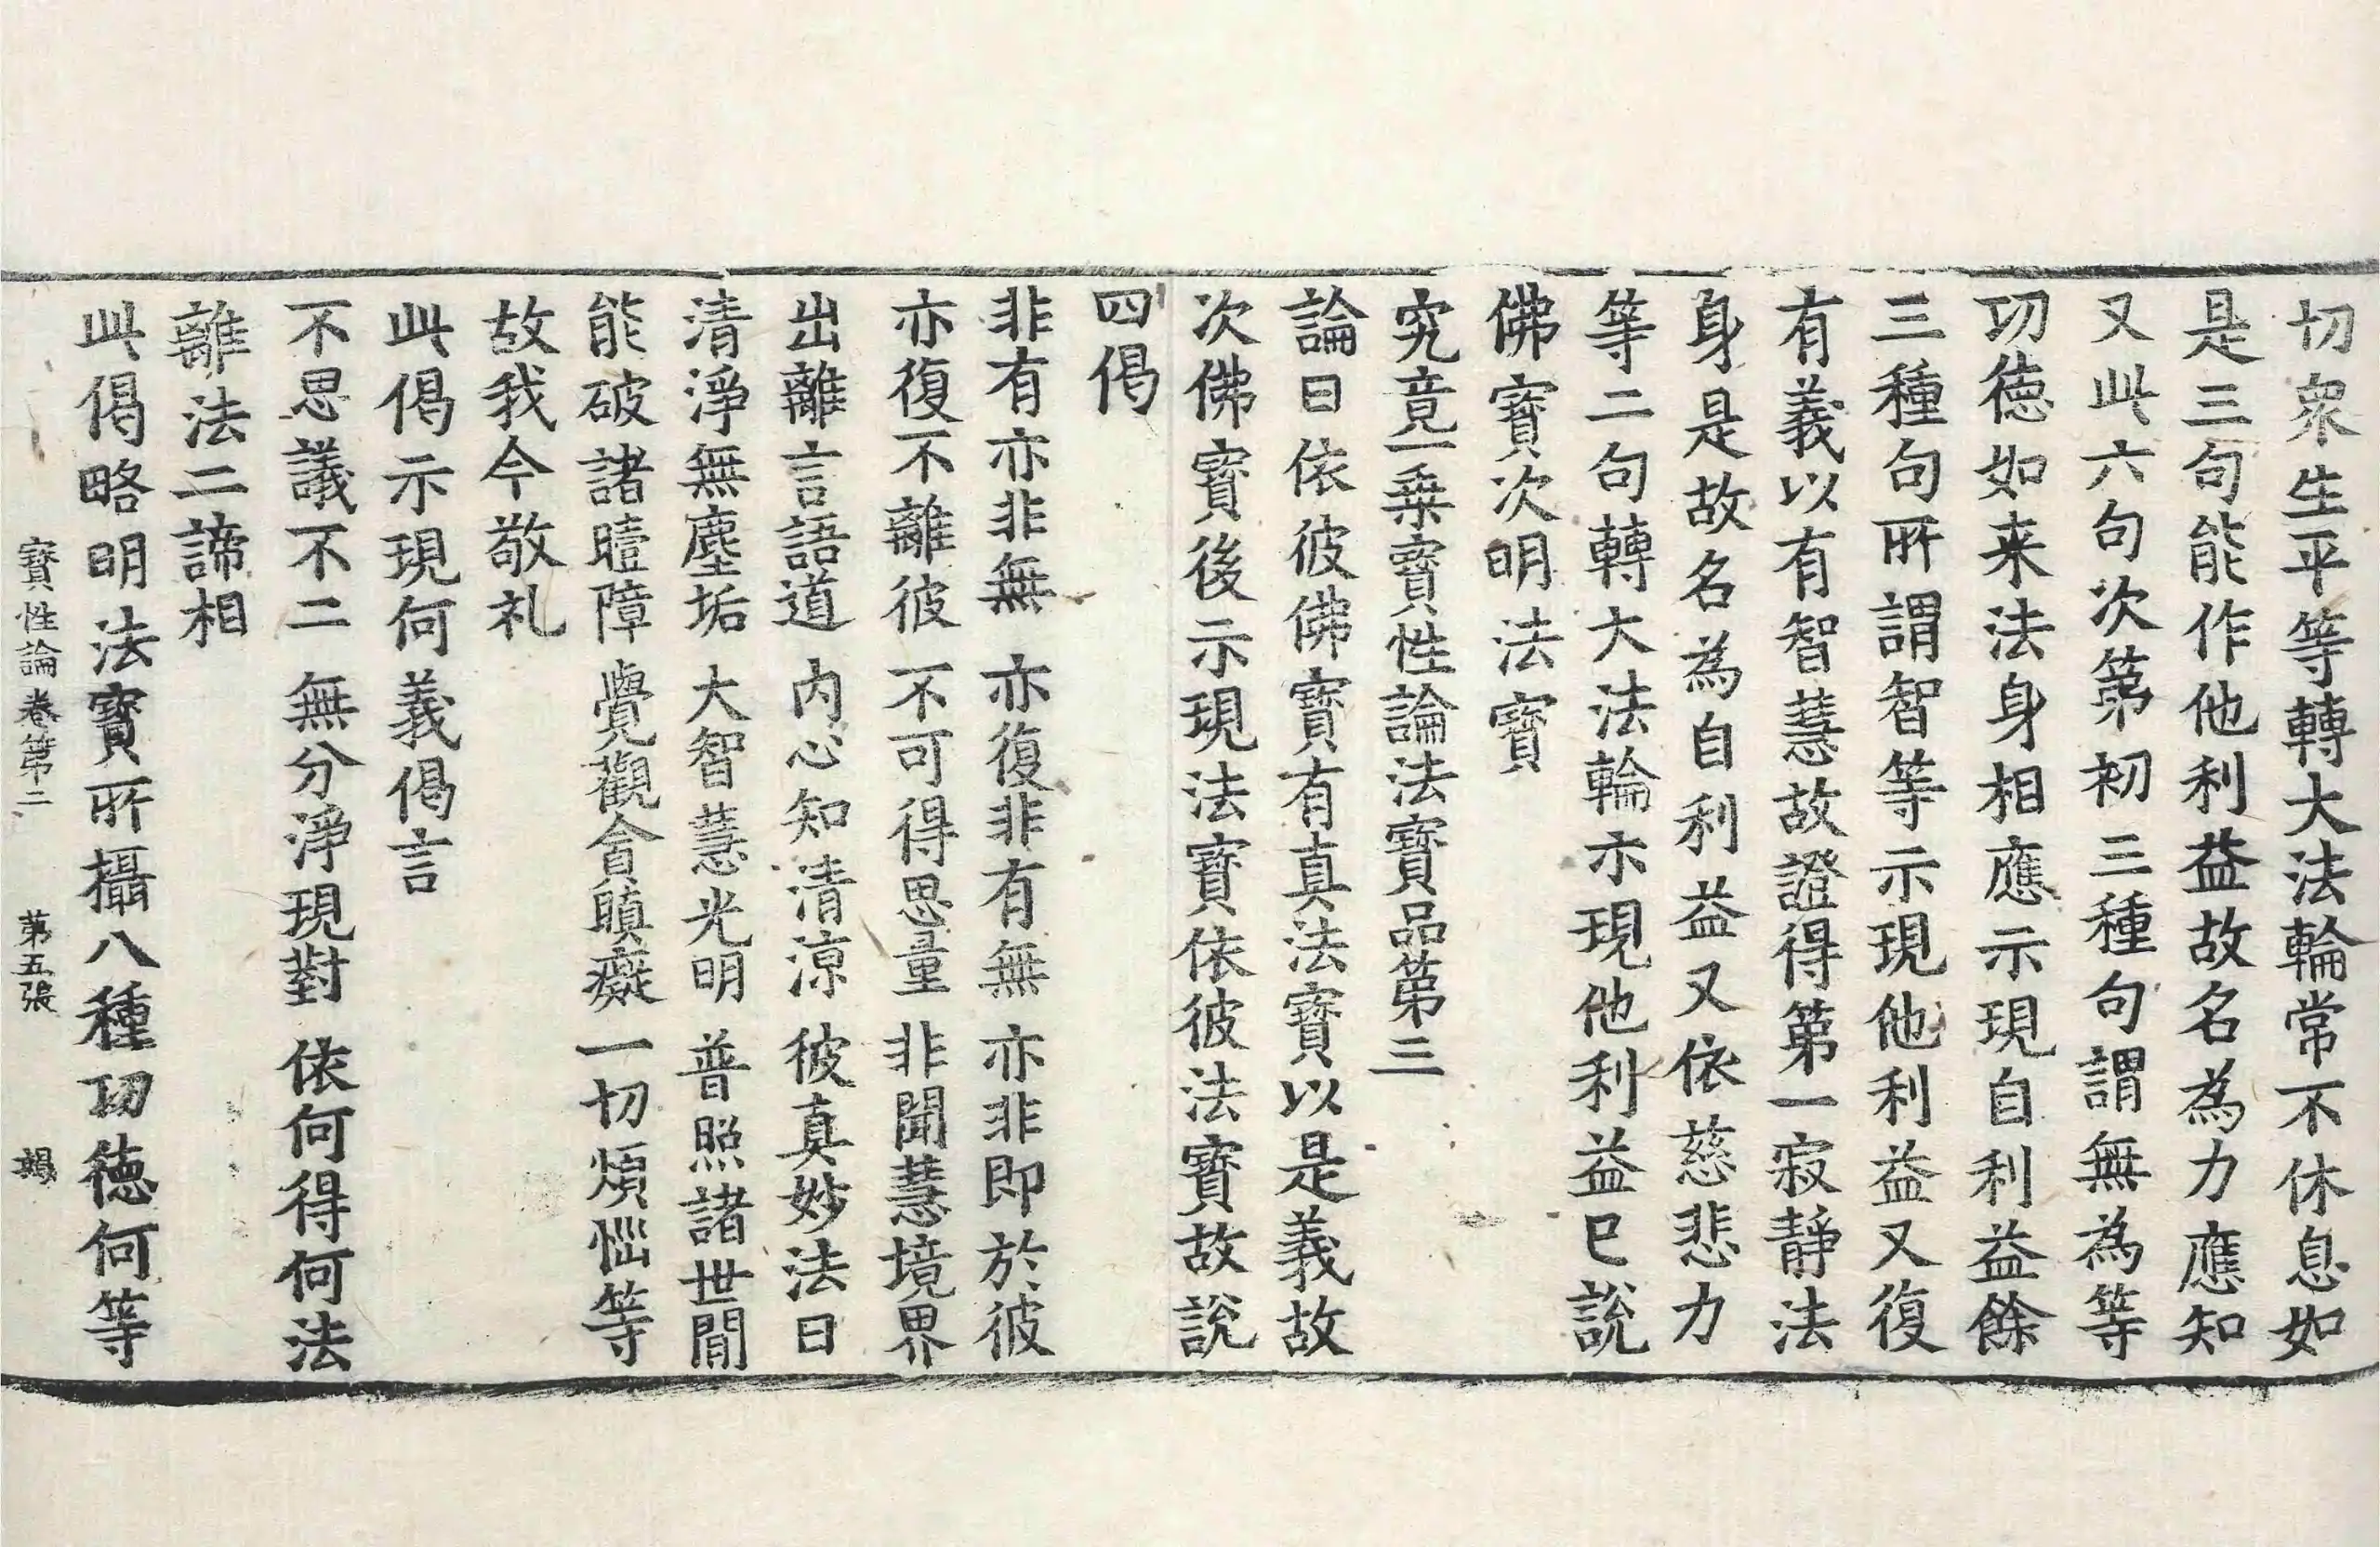 切衆生平等轉大法輪常不休息如
是三句能作他利益故名為力應知
又此六句次第初三種句謂無為等
功徳如来法身相應示現自利益餘
三種句所謂智等示現他利益又復
有義以有智慧故證得第一寂靜法
身是故名為自利益又依慈悲力
等二句轉大法輪示現他利益已說
佛寳次明法寳
究竟一乗寳性論法寳品第三
論曰依彼佛寳有真法寳以是義故
次佛寳後示現法寳依彼法寳故說
四偈
非有亦非無　亦復非有無　亦非即於彼
亦復不離彼　不可得思量　非聞慧境界
出離言語道　内心知清涼　彼真妙法日
清淨無塵垢　大智慧光明　普照諸世間
能破諸曀障　覺觀貪瞋癡　一切煩惱等
故我今敬礼
此偈示現何義偈言
不思議不二　無分淨現對　依何得何法
離法二諦相
此偈略明法寳所攝八種功徳何等
寳性論卷第二　第五張